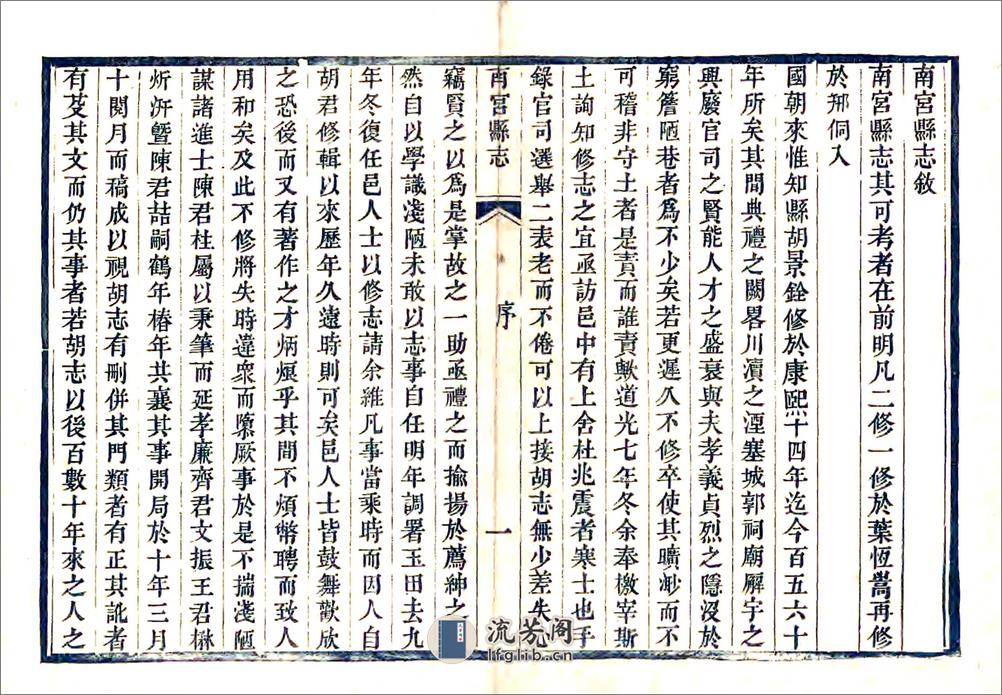 南宮縣志敘
南宮縣志其可考者在前明凡二修一修於葉恆嵩再修
於邢侗入
國朝來惟知縣胡景銓修於康熙十四年迄今百五六十
年所矣其間典禮之闕畧川瀆之湮塞城郭祠廟廨宇之
興廢官司之賢能人才之盛衰與夫孝義貞烈之隱沒於
窮簷陋巷者爲不少矣若更遲久不修卒使其曠渺而不
可稽非守土者是責而誰責歟道光七年冬余奉檄宰斯
土詢知修志之宜亟訪邑中有上舍杜兆震者寒士也手
錄官司選舉二表老而不倦可以上接胡志無少差失
南宮縣志
序
一
竊賢之以爲是掌故之一助亟禮之而揄揚於薦紳之
然自以學識淺陋未敢以志事自任明年調署玉田去九
年冬復任邑人士以修志請余維凡事當乘時而因人自
胡君修輯以來歷年久遠時則可矣邑人士皆鼓舞歡欣
之恐後而又有著作之才炳烺乎其間不煩幣聘而致人
用和矣及此不修將失時違衆而隳厥事於是不揣淺陋
謀諸進士陳君柱屬以秉筆而延孝廉齊君文振王君楙
炘汧暨陳君喆嗣鶴年椿年共襄其事開局於十年三月
十閱月而稿成以視胡志有刪併其門類者有正其訛者
有芟其文而仍其事者若胡志以後百數十年來之人之
流芳阁
lfglib.cn